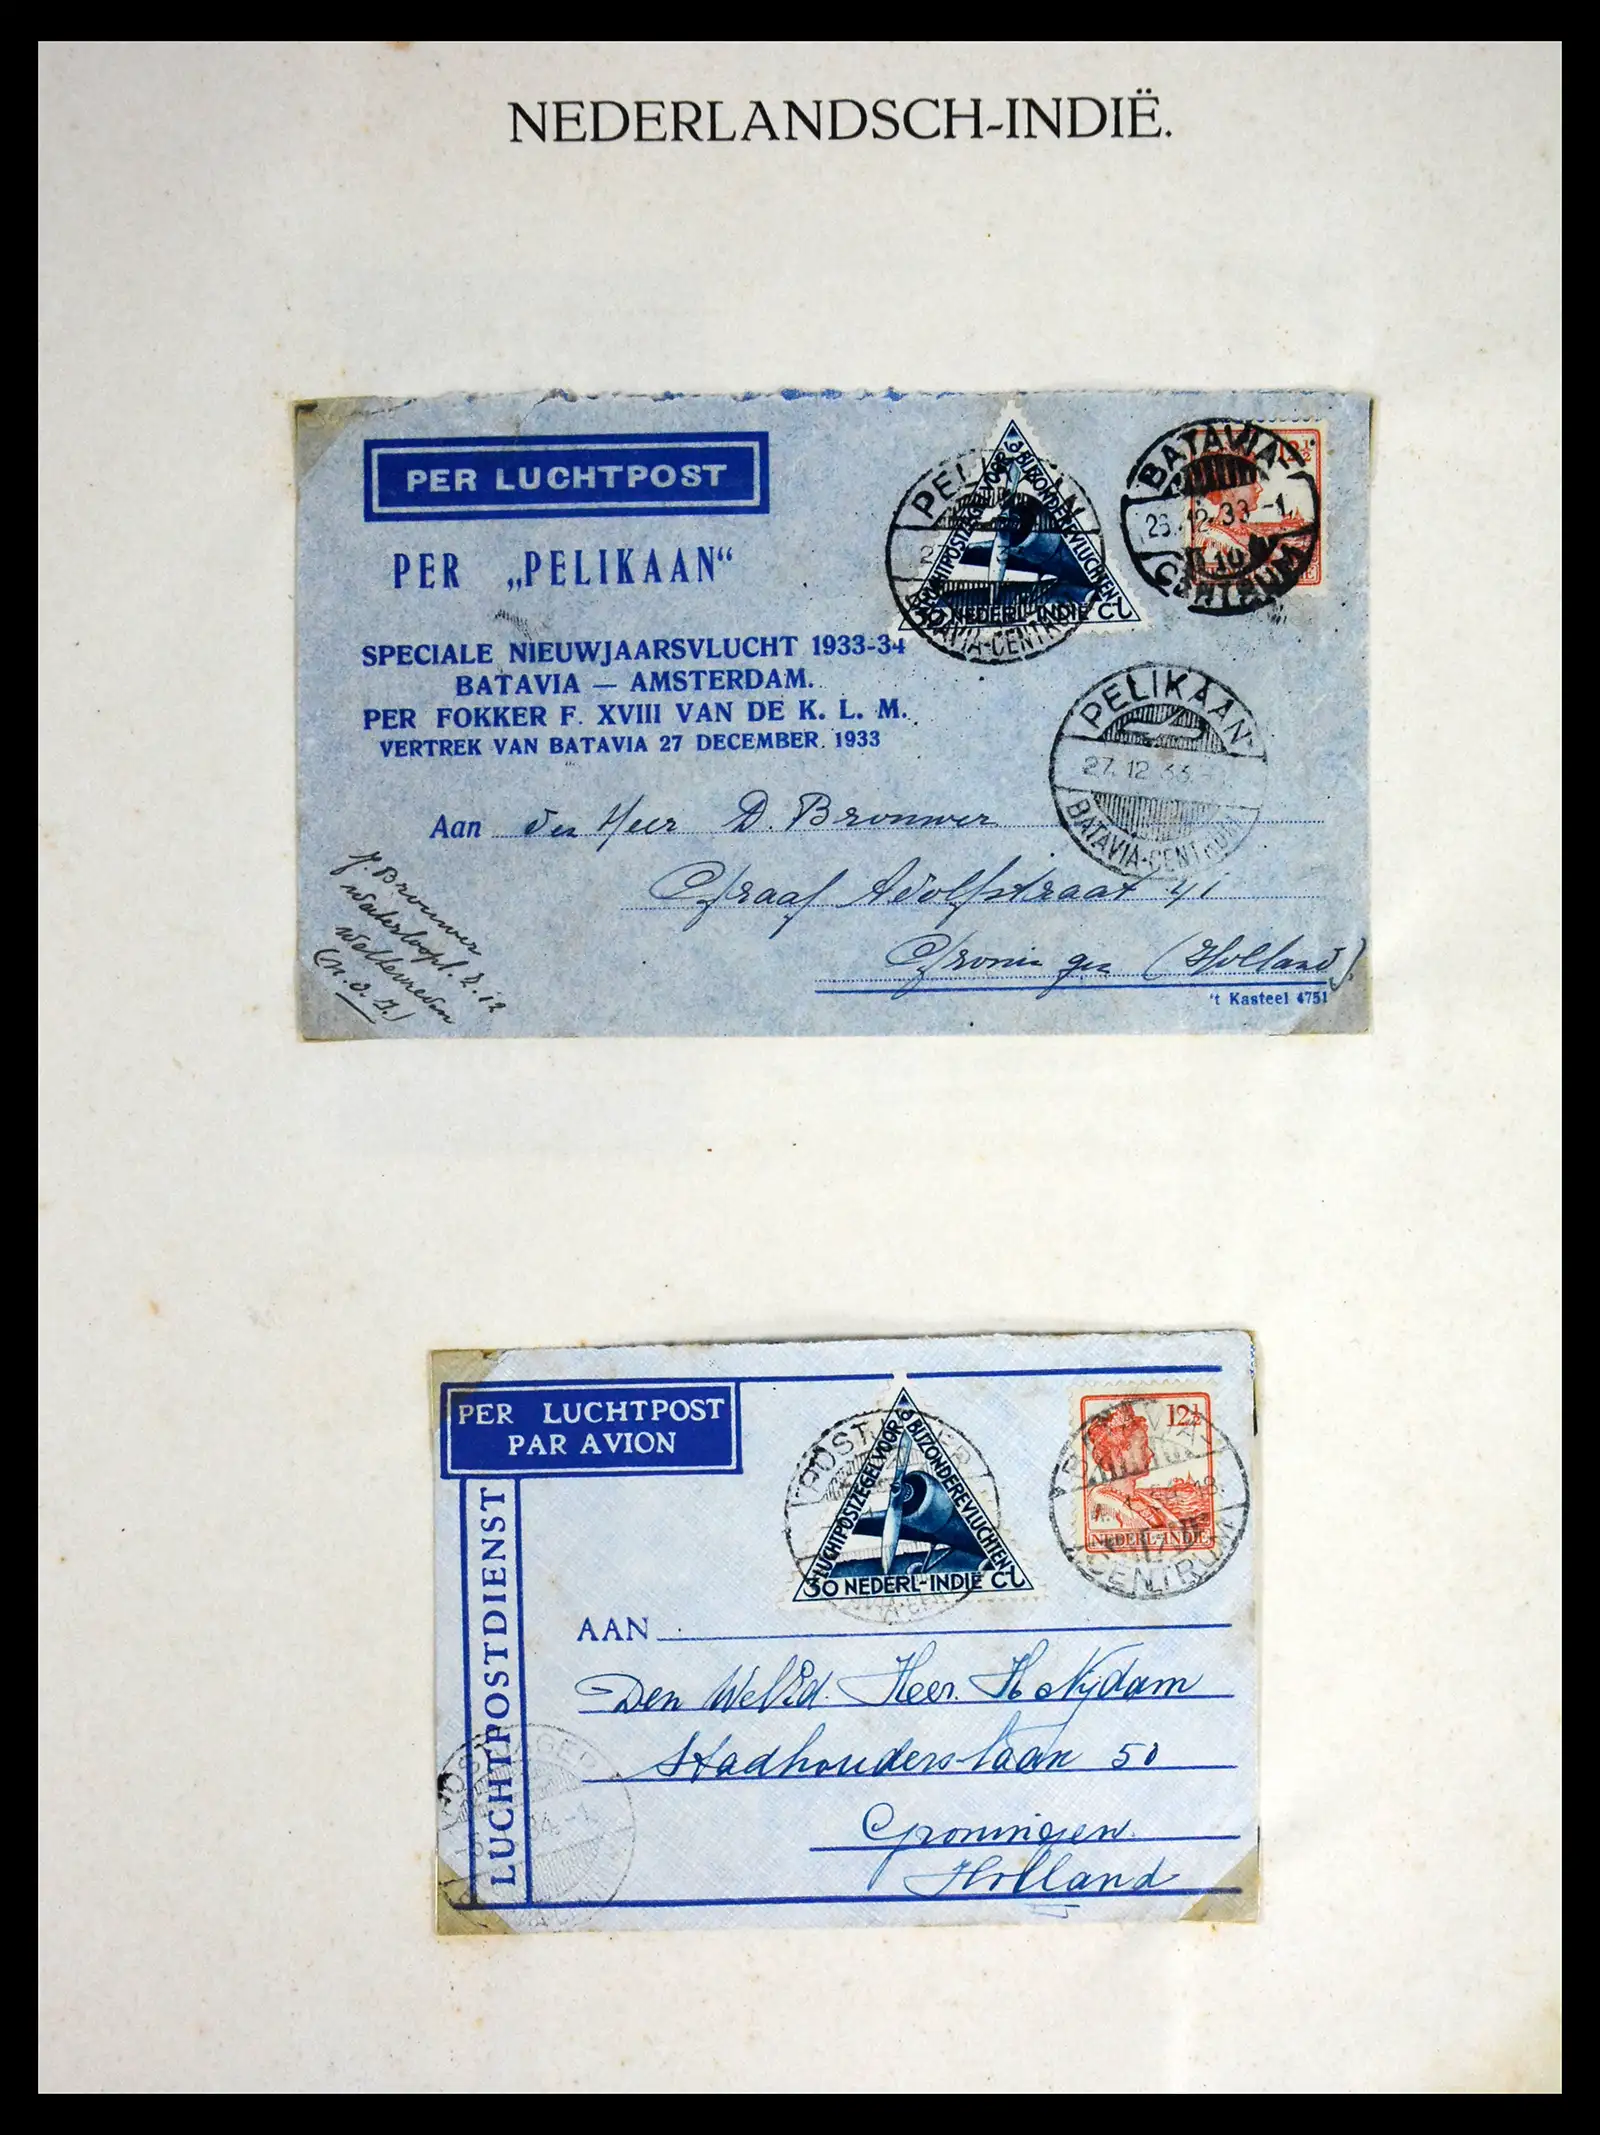 NEDERLANDSCH-INDIË.
PER LUCHTPOST
PER „PELIKAAN“
SPECIALE NIEUWJAARSVLUCHT 1933-34
BATAVIA — AMSTERDAM.
PER FOKKER F. XVIII VAN DE K. L. M.
VERTREK VAN BATAVIA 27 DECEMBER. 1933
PELIKAAN
BATAVIA-CENTRUM
LUCHTPOSTZEGEL VOOR BIJZONDERE VLUCHTEN
30 NEDERL-INDIË CT
12½
BATAVIA-
12.33-1
CENTRUM
PELIKAAN
27.12.33.-
BATAVIA-CENTRUM
Aan den Heer D. Brouwer
Graaf Adolfstraat 41
Groningen (Holland)
't Kasteel 4751
J. Brouwer
Waterloopl. 2.12
Weltevreden
(N.O.I.)
PER LUCHTPOST
PAR AVION
LUCHTPOSTDIENST
POSTJAGER
LUCHTPOSTZEGEL VOOR BIJZONDERE VLUCHTEN
30 NEDERL-INDIË CT
12½
NEDERL-INDIË
BATAVIA-
CENTRUM
AAN
Den WelEd. Heer. H. Nijdam
Stadhouderslaan 50
Groningen.
Holland
POSTJAGER
34.-1